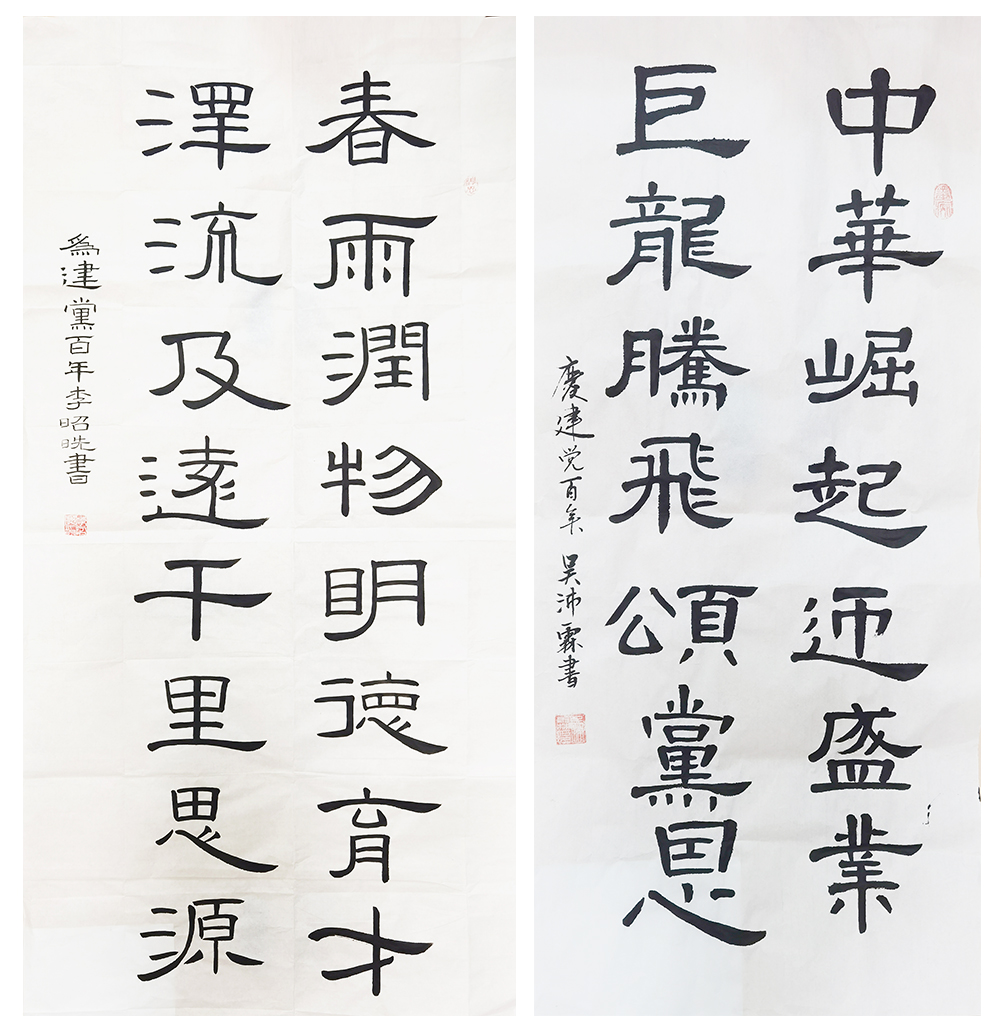 中華崛起迊盛業
巨龍騰飛頌黨恩
慶建党百年 吴沛霖書
春雨潤物明德育才
澤流及遠千里思源
為建黨百年李昭晄書